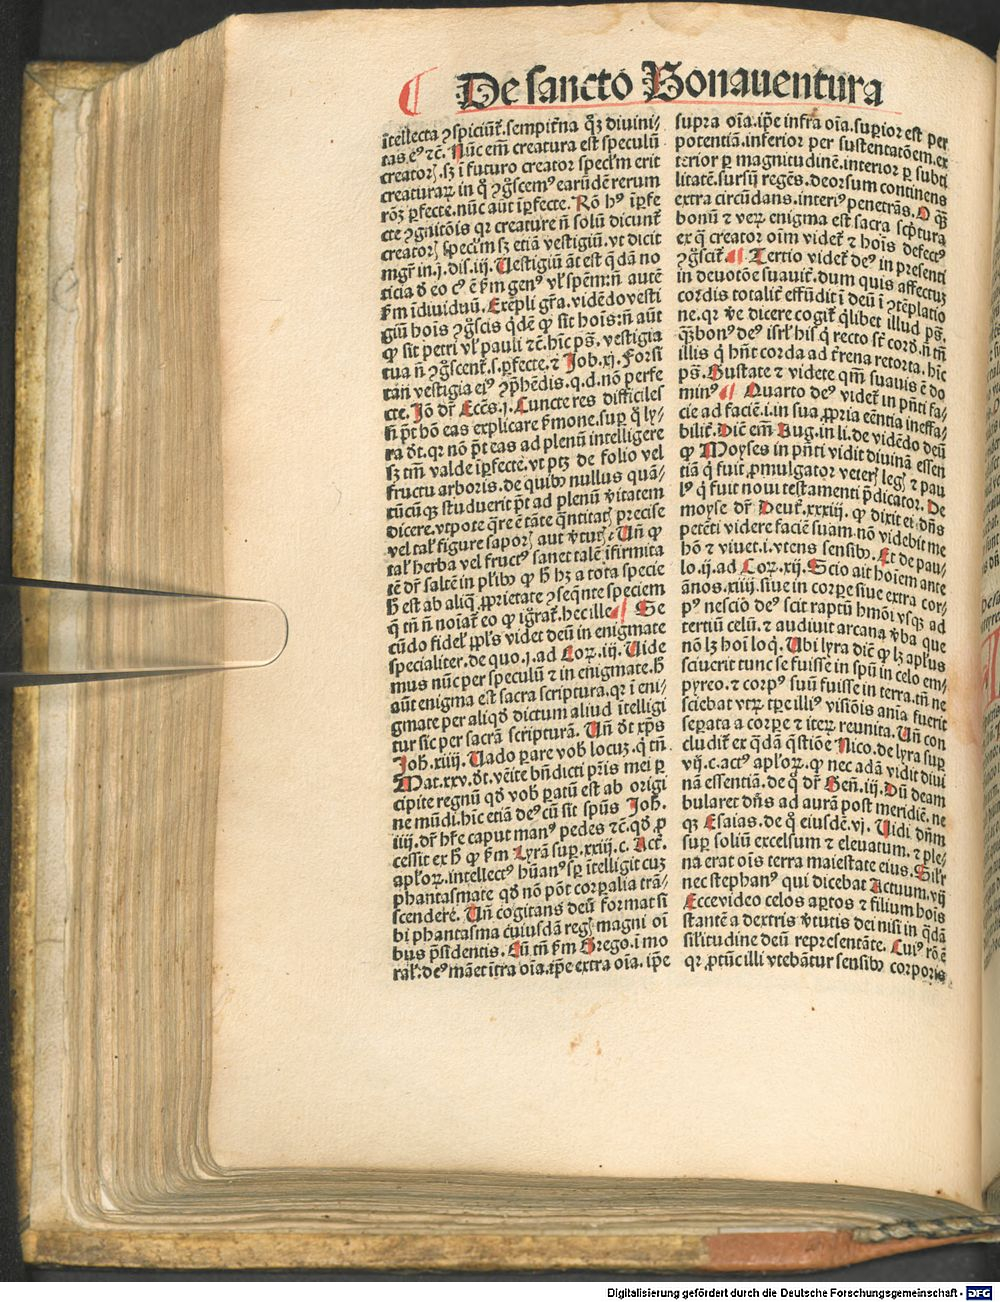 De sancto Bonauentura
ītellecta ꝯspiciūt᷑.sempit̄na q̄ꝫ diuini⸗
tas eꝰ ⁊c̄. Nūc em̄ creatura est speculū
creatorꝭ.sꝫ ī futuro creator specl̄m erit
creaturaꝝ in q̊ ꝯg̊scemꝰ earūdē rerum
rōꝫ ꝑfecte.nūc aūt īꝑfecte. Rō hꝰ īꝑfe
cte ꝯgnitōis qꝛ creature n̄ solū dicunt᷑
creatorꝭ specl̄m sꝫ etiā vestigiū.vt dicit
mgr̄ in.j.dis.iij. Uestigiū āt est q̄dā no
ticia d̓ eo cꝰ ē ẜm genꝰ vl̓ spēm:n̄ autē
ẜm īdiuiduū. Exēpli gr̄a.vidēdo vesti
giū hois ꝯg̊scis q̄dē ꝙ sit hois:n̄ aūt
ꝙ sit petri vl̓ pauli ⁊c̄.hīc ps̄. vestigia
tua n̄ ꝯg̊scent᷑.s.ꝑfecte.⁊ Job.xj. Forsi
tan̄ vestigia eiꝰ ꝯp̄hēdis.q.d.nō perfe
cte. Jō dr̄ Ecc̄s.j. Cuncte res difficiles
n̄ p̄t hō eas explicare ẜmone.suꝑ q̊ ly⸗
ra d̓t.qꝛ nō p̄t eas ad plenū intelligere
sꝫ tm̄ valde īꝑfecte.vt ptꝫ de folio vel
fructu arboris.de quibꝰ nullus quā⸗
tūcūqꝫ studuerit p̄t ad plenū v̓itatem
dicere.vtpote q̄re ē tāte q̄ntitatꝭ precise
vel tal̓ figure saporꝭ aut v̓tutꝭ. Un̄ ꝙ
tal̓ herba vel fructꝰ sanet talē īfirmita
tē dr̄ saltē in pl̓ibꝰ ꝙ h̄ hꝫ a tota specie
h̄ est ab aliq̄ ꝓprietate ꝯseq̄nte speciem
q̄ tn̄ n̄ noīat᷑ eo ꝙ igrat᷑.hec ille ¶ Se
cūdo fidel̓ ppl̓s videt deū in enigmate
specialiter.de quo.j.ad Coꝝ.iij. Uide
mus nūc per speculū ⁊ in enigmate.h̄
aūt enigma est sacra scriptura.qꝛ ī eni⸗
gmate per aliqd̓ dictum aliud ītelligi
tur sic per sacrā scripturā. Un̄ d̓t xp̄s
Joh̄. xiiij. Uado parare vob̓ locuꝫ.q̓ tn̄.
Mat.xxv.d̓t.veīte bn̄dicti pr̄is mei ꝑ
cipite regnū qd̓ vob̓ ꝑatū est ab origi
ne mūdi.hīc etiā deꝰ cū sit spūs Joh̄.
iiij.dr̄ hr̄e caput manꝰ pedes ⁊c̄.qd̓ ꝓ
cessit ex h̄ ꝙ ẜm Lyrā suꝑ.xxiij.c. Act᷑.
apl̓oꝝ.intellectꝰ hūanꝰ sꝑ ītelligit cuꝫ
phantasmate qd̓ nō pōt corꝑalia trā⸗
scendere. Un̄ cogitans deū format si
bi phantasma cuiusdā regꝭ magni oī
bus p̄sidentis. Cū tn̄ ẜm Grego.i mo
ral̓.deꝰ manet ītra oīa.ip̄e extra oīa. ip̄e
supra oīa.ip̄e infra oīa.suꝑior est per
potentiā.inferior per sustentatōem.ex
terior ꝑ magnitudinē.interior ꝑ subti
litatē.sursū regēs.deorsum continens
extra circūdans.interiꝰ penetrās. O q̄ꝫ
bonū ⁊ veꝝ enigma est sacra scptura
ex q̄ creator oīm videt᷑ ⁊ hois defectꝰ
ꝯg̊scit᷑. ¶ Tertio videt᷑ deꝰ in presenti
in deuotōe suauit᷑.dum quis affectuꝫ
cordis totalit᷑ effūdit ī deū ī ꝯtēplatio
ne.qꝛ v̓e dicere cogit᷑ q̓libet illud ps̄.
q̄ꝫ bonꝰ deꝰ isrl̓ his q̓ recto st̄ cord̓.n̄ tn̄
illis q̓ hn̄t corda ad t̓rena retorta.hīc
ps̄. Gustate ⁊ videte qm̄ suauis ē do
minꝰ ¶ Quarto deꝰ videt᷑ in pn̄ti fa⸗
cie ad faciē.i.in sua ꝓpria eēntia ineffa⸗
bilit᷑. Dic̄ em̄ Aug.in li.de vidēdo deū
ꝙ Moyses in pn̄ti vidit diuinā essen
tiā q̓ fuit ꝓmulgator veterꝭ legꝭ ⁊ pau
lꝰ q̓ fuit noui testamenti p̄dicator. De
moyse dr̄ Deut᷑.xxxiij. ꝙ dixit ei dn̄s
petēti videre faciē suam.nō videbit me
hō ⁊ viuet.i.vtens sensibꝰ. Et de pau⸗
lo.ij.ad Coꝝ.xij. Scio ait hoīem ante
ānos.xiiij.siue in corꝑe siue extra cor⸗
pꝰ nescio deꝰ scit raptū hmōi vsqꝫ ad
tertiū celū.⁊ audiuit arcana v̓ba que
nō lꝫ hoī loq̓. Ubi lyra dic̄ ꝙ lꝫ apl̓us
sciuerit tunc se fuisse in spū in celo em⸗
pyreo.⁊ corpꝰ suū fuisse in terra.tn̄ ne
sciebat vtꝝ tꝑe illiꝰ visiōis anīa fuerit
seꝑata a corꝑe ⁊ iteꝝ reunita. Un̄ con
cludit᷑ ex q̄dā q̄stiōe Nico.de lyra suꝑ
vij.c.actꝰ apl̓oꝝ.ꝙ nec adā vidit diui
nā essentiā.de q̊ dr̄ Gen̄.iij. Dū deam
bularet dn̄s ad aurā post meridiē. ne
qꝫ Esaias.de q̊ eiusdē.vj. Uidi dn̄m
suꝑ soliū excelsum ⁊ eleuatum. ⁊ ple⸗
na erat oīs terra maiestate eius. Sil̓r
nec stephanꝰ qui dicebat Actuum.vij
Ecce video celos aꝑtos ⁊ filium hois
stantē a dextris v̓tutis dei nisi in q̄dā
sil̓itudine deū representāte. Cuiꝰ rō ē
qꝛ ꝓtūc illi vtebātur sensibꝰ corporis
Digitalisierung gefördert durch die Deutsche Forschungsgemeinschaft - DFG